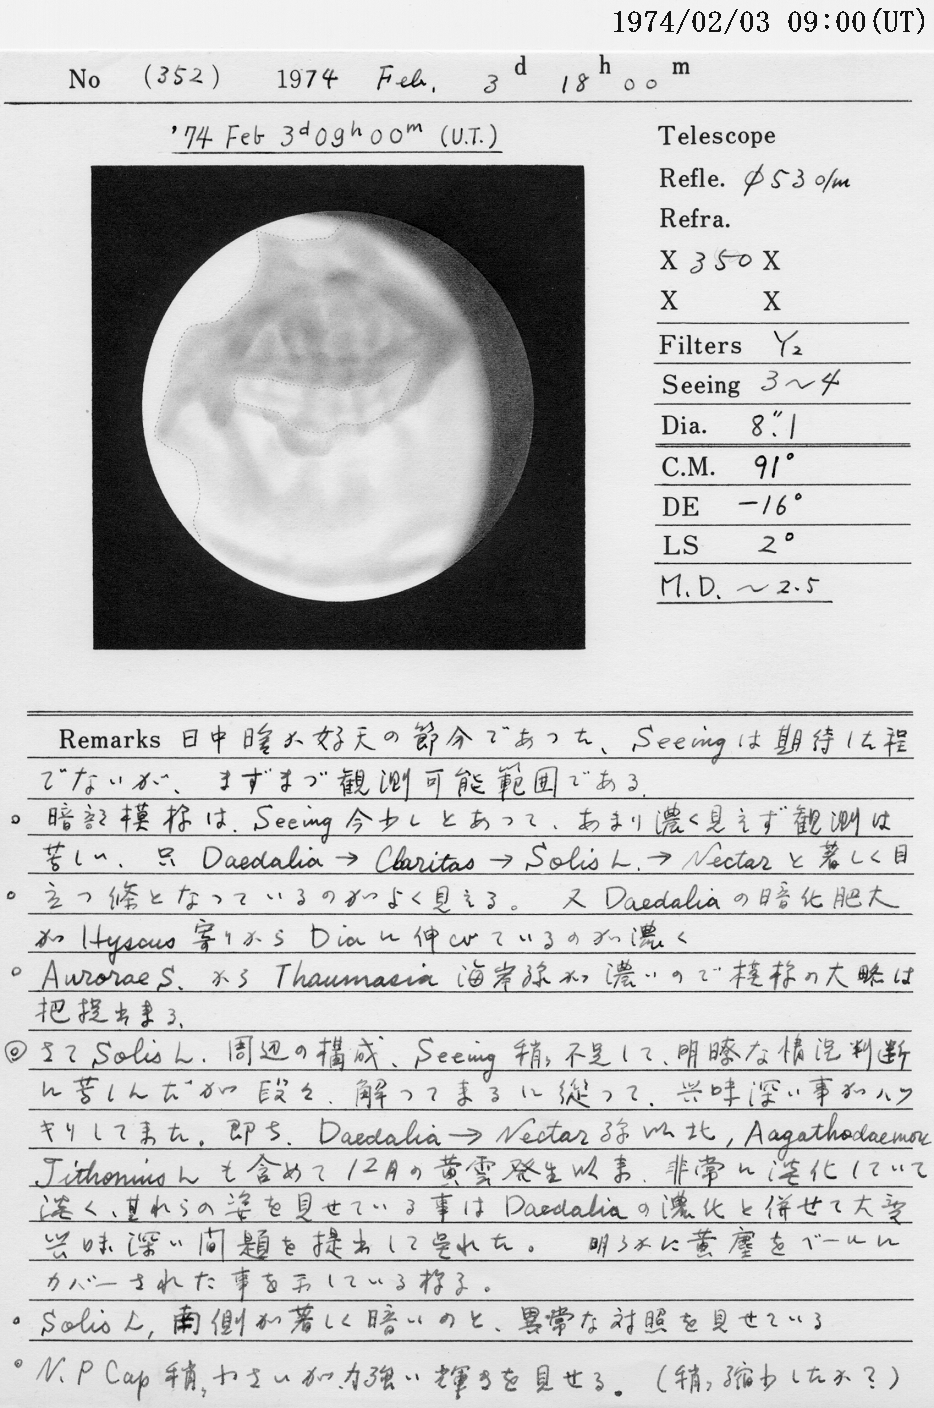 1974/02/03 09:00(UT)
No (352) 1974 Feb. 3 d 18 h 00 m
'74 Feb 3d 09h 00m (U.T.)
Telescope
Refle. φ530m/m
Refra.
X 350 X
X X
Filters Y2
Seeing 3~4
Dia. 8."1
C.M. 91°
DE -16°
LS 2°
M.D. ~2.5
Remarks 日中暗か好天の節分であった、Seeingは期待した程
でないが、まずまづ観測可能範囲である.
○ 暗部模様は、Seeing今少しとあって、あまり濃く見えず観測は
苦しい、只 Daedalia → Claritas → Solis L. → Nectar と著しく目
○ 立つ條となっているのがよく見える。 又 Daedaliaの暗化肥大
が Hyscus 寄りから Diaに伸びているのが濃く
○ Aurorae S. から Thaumasia 海岸線が濃いので模様の大略は
把握出来る、
◎ さて Solis L. 周辺の構成、Seeing 稍々不足して、明瞭な情況判断
に苦しんだが 段々、解ってまるに從って、興味深い事がハッ
キリして来た。即ち、Daedalia → Nectar 線以北, Aagathodaemon
Tithonius L も含めて 12月の黄雲発生以来、非常に淡化していて
淡く、其れらの姿を見せている事は Daedaliaの濃化と併せて大変
興味深い問題を提出して呉れた。 明らかに黄塵をベールに
カバーされた事を示している様る。
○ Solis L, 南側が著しく暗いのと、異常な対照を見せている
○ N.P Cap 稍々小さいが力強い輝きを見せる。 (稍々縮少したか?)